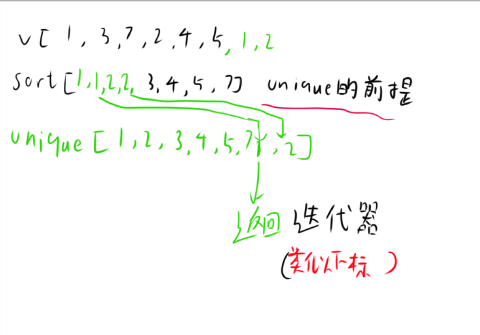 v[ 1, 3, 7, 2, 4, 5, 1, 2
sort[1,1,2,2, 3, 4, 5, 7] unique的前提
unique [ 1, 2, 3, 4, 5, 7, 1, 2]
返回 迭代器
(类似下标)